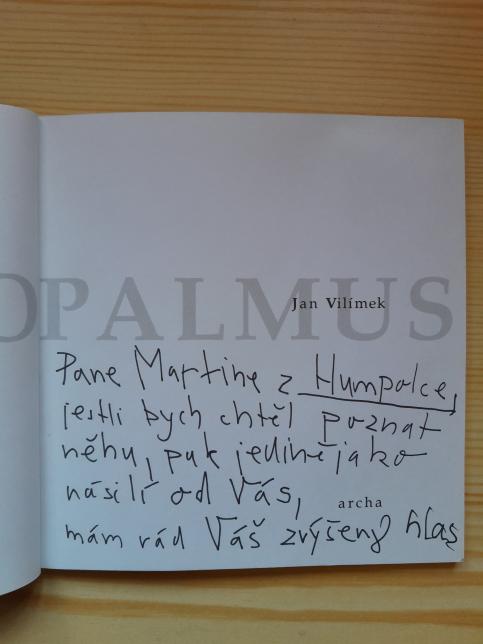 OPALMUS
Jan Vilímek
Pane Martine z Humpolce,
jestli bych chtěl poznat
něhu, pak jedině jako
násilí od Vás,
archa
mám rád Váš zvýšený hlas